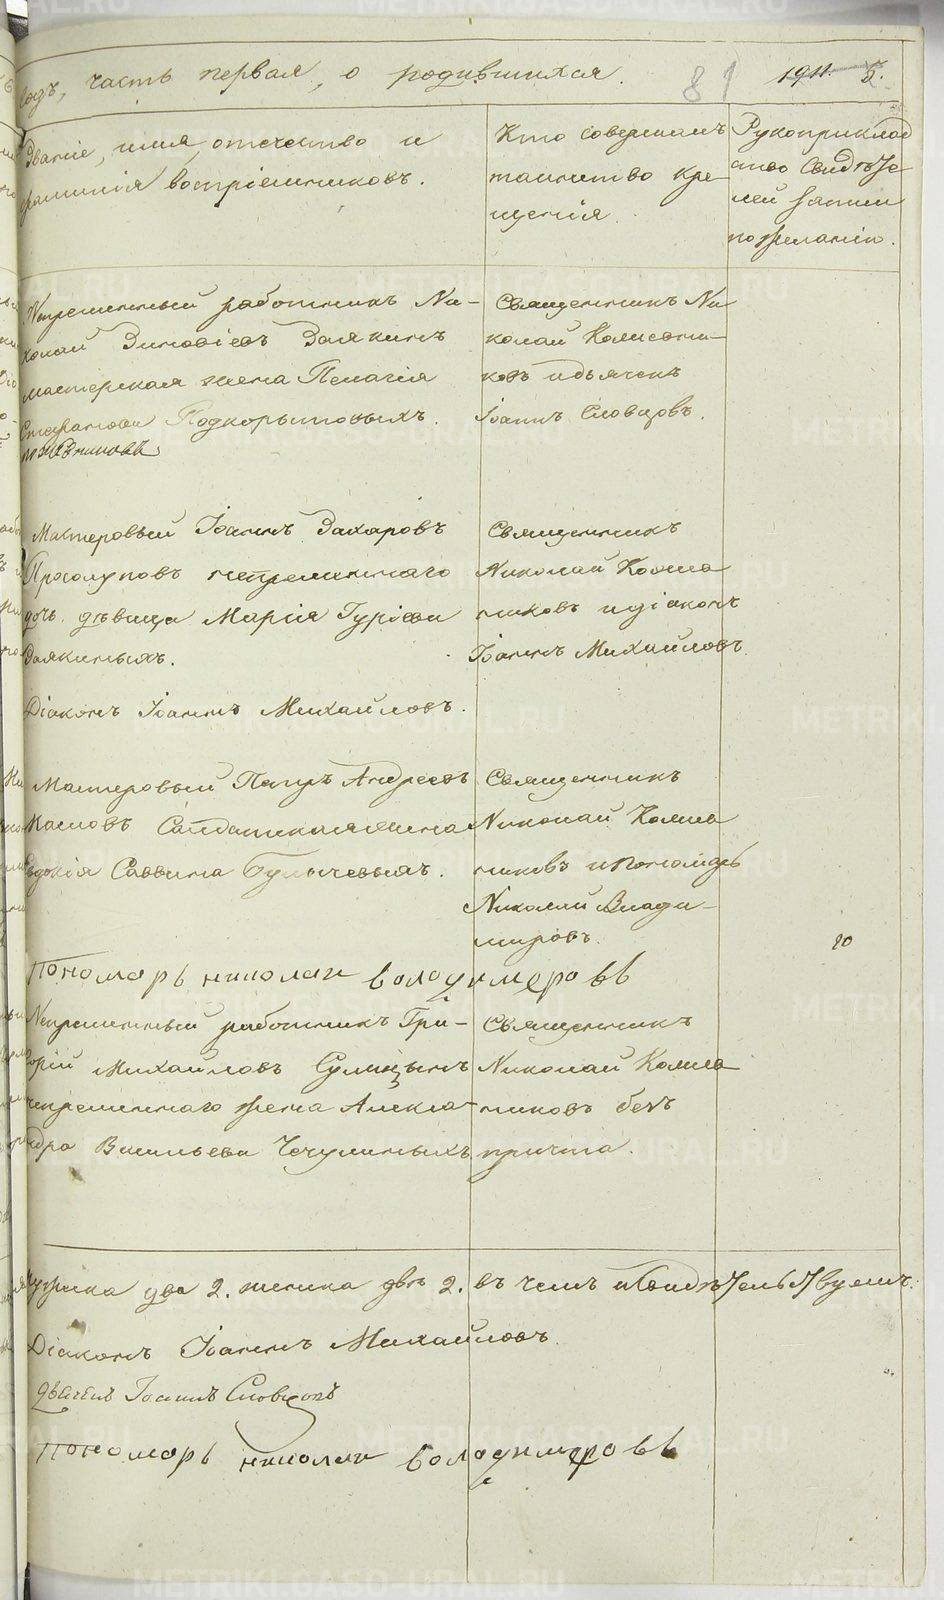 годъ, часть первая, о родившихся. 81 1911. 5.
Званіе, имя, отечество и
фамилія воспріемниковъ.
Кто совершалъ
таинство кре
щенія.
Рукоприклад
ство свидѣте
лей записи
по желанію.
Непременный работникъ Ни-
колай Зиновіевъ Заякинъ
мастерская жена Пелагія
Стефанова Подкорытовыхъ.
Священникъ Ни
колай Колмогоро-
ковъ и дьячекъ
Іоаннъ Словцовъ.
Мастеровый Іоаннъ Захаровъ
Просолуповъ непременнаго
дочь дѣвица Марія Гуріева
Заякиныхъ.
Діаконъ Іоаннъ Михайловъ.
Священникъ
Николай
никовъ и діаконъ
Іоаннъ Михайловъ
Мастеровый Петръ Андреевъ
жена
Евдокія Саввина Булычевыхъ.
Священникъ
Николай
никовъ и пономарь
Николай Влади-
мировъ.
20
Пономарь николаи володимеровъ
Непременный работникъ Гри-
горій Михайловъ
непременнаго жена Алекса-
ндра Васильева Чечулиныхъ
Священникъ
Николай
никовъ безъ
причта.
мужеска два 2. женска двѣ 2. въ чемъ и свидѣтельствуемъ.
Діаконъ Іоаннъ Михайловъ.
Дьячекъ Іоаннъ Словцовъ
Пономарь николаи володимеровъ
METRIKI.GASO-URAL.RU